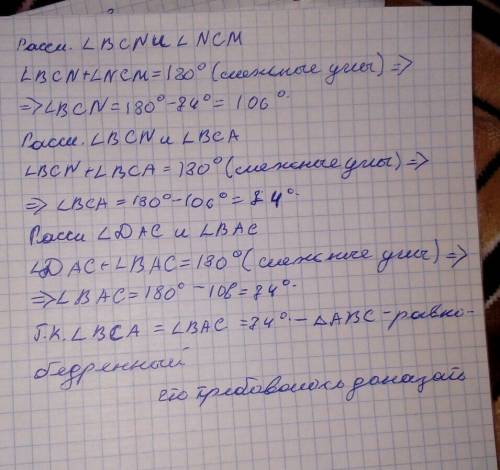 Рассм. ∠BCN и ∠NCM
∠BCN+∠NCM=180° (смежные углы) =>
=>∠BCN=180°-84°= 106°.
Рассм. ∠BCN и ∠BCA
∠BCN+∠BCA = 180° (смежные углы) =>
=> ∠BCA = 180°-106°= 84°.
Рассм ∠DAC и ∠BAC
∠DAC+∠BAC=180° (смежные углы) =>
=>∠BAC=180° - 106=84°.
Т.К. ∠BCA = ∠BAC = 84° - △ABC - равно-
бедренный
что требовалось доказать